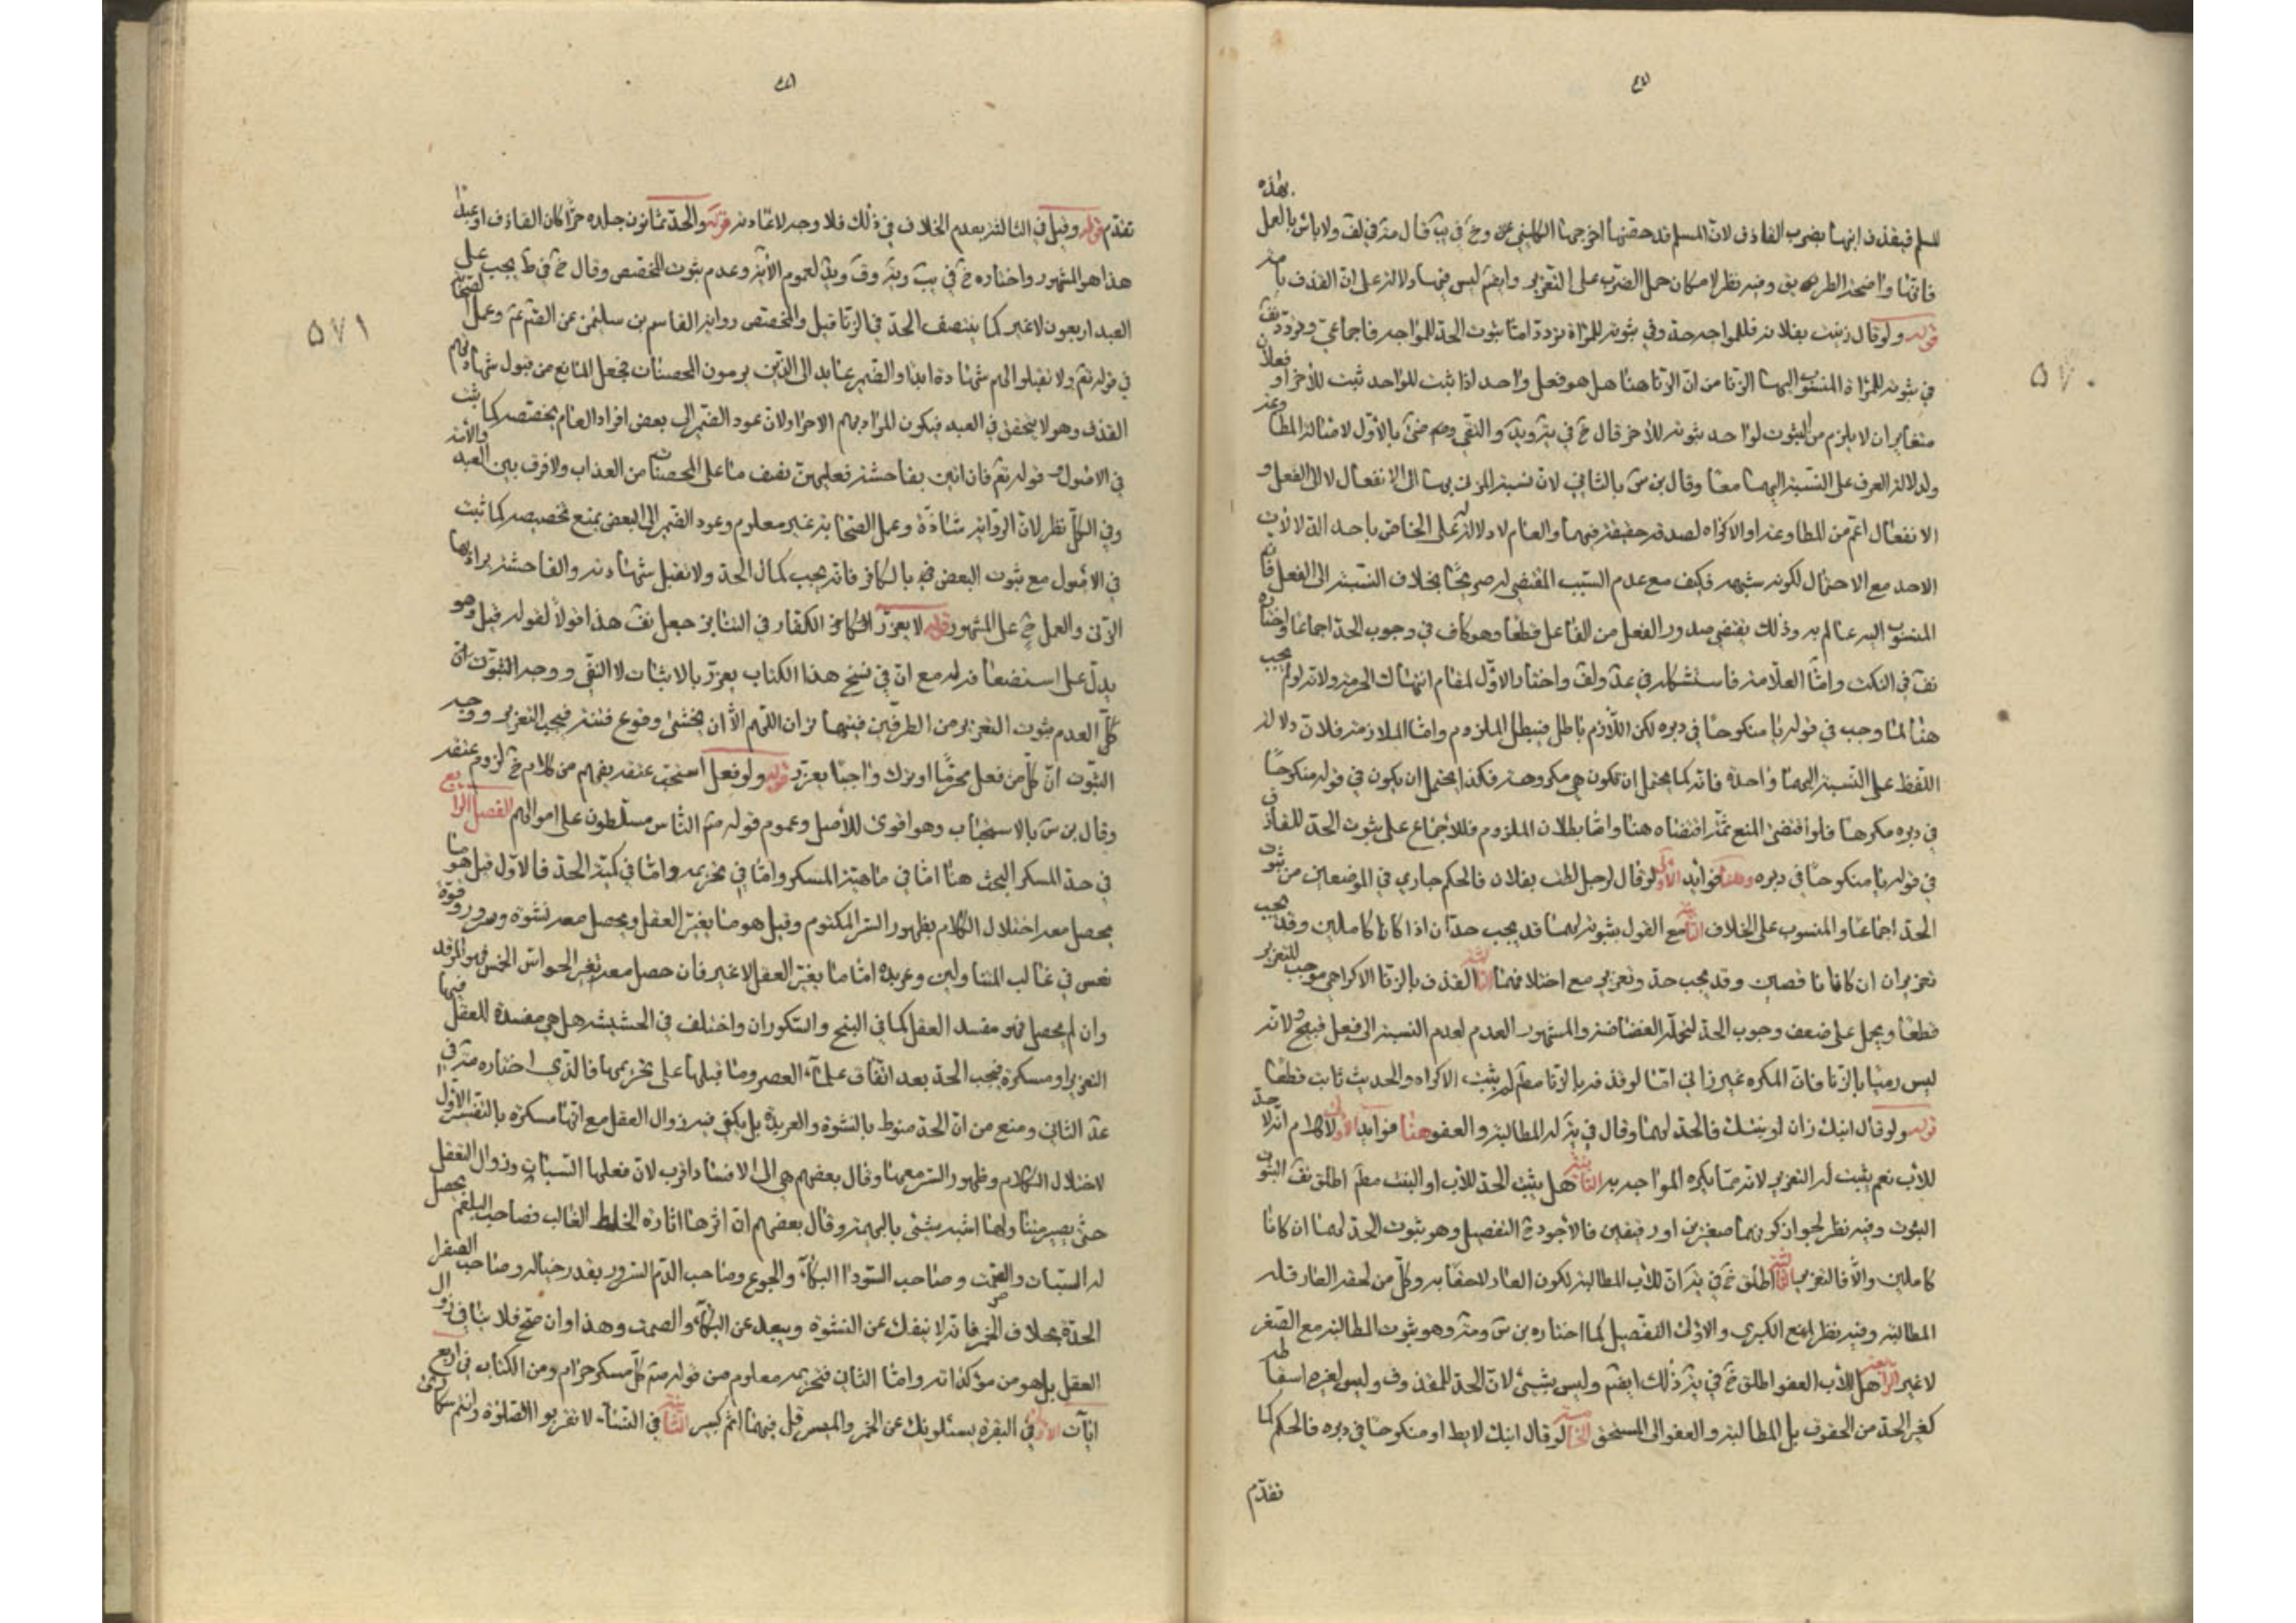 للمسلم فيقذف ابنها يضرب القاذف لان المسلم قد حصنها اخرجها الكليني وخ في يب قال في لف ولا باس بالعمل بهذه
فانها واضحة الطريق وفيه نظر لامكان حمل الضرب على التعزير وايضا ليس فيها دلالة على ان القذف بامه
قوله ولو قال زنيت بفلانة فللمواجه حد وفي ثبوته للمراة تردد اما ثبوت الحد للمواجه فاجماعي وتردد
في ثبوته للمراة المنسوب اليها الزنا من ان الزنا هنا هل هو فعل واحد اذا ثبت للواحد ثبت للاخر او فعلان
متغايران لا يلزم من الثبوت لواحد ثبوته للاخر قال خ في والتقي بالاول لاصالة المطاوعة
ولدلالة العرف على النسبة اليهما معا وقال بن س بالثاني لان نسبة المزني بها الى الانفعال لا الى الفعل و
الانفعال اعم من المطاوعة او الاكراه لصدقه حقيقة فيهما والعام لا دلالة له على الخاص باحد الثلاث
الاحد مع الاحتمال لكونه شبهة فكيف مع عدم السبب المقتضي له صريحا بخلاف النسبة الى الفعل فان
المنسوب اليه عالم به وذلك يقتضي صدور الفعل من الفاعل قطعا وهو كاف في وجوب الحد اجماعا واختاره
في النكت واما العلامة فاستشكله في عد ولف واختار الاول لمقام انتهاك الحرمة ولانه لو لم يجب
هنا لما وجب في قوله يا منكوحا في دبره لكن اللازم باطل فيبطل الملزوم واما الملازمة فلان دلالة
اللفظ على النسبة اليهما واحدة فانه كما يحتمل ان تكون هي مكروهة فكذا يحتمل ان يكون في قوله منكوحا
في دبره مكرها فلو اقتضى المنع ثمة اقتضاه هنا واما بطلان الملزوم فللاجماع على ثبوت الحد للقاذف
في قوله يا منكوحا في دبره وهنا فوايد الاولى لو قال لرجل لطت بفلان فالحكم جاري في الموضعين من ثبوت
الحد اجماعا والمنسوب على الخلاف الثانية مع القول بثبوته لهما قد يجب حدان اذا كانا كاملين وقد يجب
تعزيران ان كانا ناقصين وقد يجب حد وتعزير مع اختلافهما الثالثة القذف بالزنا الاكراهي موجب للتعزير
قطعا ويحمل على ضعف وجوب الحد لتحمله الغضاضة والمشهور العدم لعدم النسبة الى فعل قبيح ولانه
ليس رميا بالزنا فان المكره غير زاني اما لو قذفه بالزنا ثم لم يثبت الاكراه والحديث ثابت قطعا
قوله ولو قال ابنك زان او بنتك فالحد لهما وقال في له المطالبة والعفو هنا فوايد الاولى لا كلام انه لا حد
للاب نعم يثبت له التعزير لانه مما يكره المواجهة به الثانية هل يثبت الحد للابن او البنت اطلق الثبوت
الثبوت وفيه نظر لجواز كونهما صغيرين او رقيقين فالاجود التفصيل وهو ثبوت الحد لهما ان كانا
كاملين والا فالتعزير الثالثة اطلق خ في ان للاب المطالبة لكون العار لاحقا به وكل من لحقه العار فله
المطالبة وفيه نظر لمنع الكبرى والاولى التفصيل كما اختاره بن س وهو ثبوت المطالبة مع الصغر
لا غير الرابعة هل للاب العفو اطلق خ في ذلك ايضا وليس بشيء لان الحد للمقذوف وليس لغيره اسقاطه
كغير الحد من الحقوق بل المطالبة والعفو الى المستحق الخامسة لو قال ابنك لايط او منكوحا في دبره فالحكم كما
تقدم
٥٧٠
تقدم قوله وقيل في الثالثة بعدم الخلاف في ذلك فلا وجه لاعادته قوله والحد ثمانون جلده حرا كان القاذف او عبدا
هذا هو المشهور واختاره خ في لعموم الآية وعدم ثبوت المخصص وقال خ في ط يجب على
العبد اربعون لا غير كما ينتصف الحد في الزنا قيل والمخصص رواية القاسم بن سليمن عن الصم وعمل الصحابة
في قوله تعم ولا تقبلوا لهم شهادة ابدا والضمير عايد الى الذين يرمون المحصنات فجعل المانع من قبول شهادتهم
القذف وهو لا يتحقق في العبد فيكون المراد بهم الاحرار ولان عود الضمير الى بعض افراد العام يخصصه كما ثبت
في الاصول قوله تعم فان اتين بفاحشة فعليهن نصف ما على المحصنات من العذاب ولا فرق بين العبد والامة
وفي الكل نظر لان الرواية شاذة وعمل الصحابة غير معلوم وعود الضمير الى البعض يمنع تخصيصه كما ثبت
في الاصول مع ثبوت البعض بالكافر فانه يجب كمال الحد ولا تقبل شهادته والفاحشة يراد بها
الزنى والعمل على المشهور قوله لا يعزر الكافر الكفار في التنابز جعل هذا قولا لقوله قيل وهو
يدل على استضعافه له مع ان في نسخ هذا الكتاب يعزر بالاثبات لا النفي ووجه الثبوت ان
كل العدم ثبوت التعزير من الطرفين اللهم الا ان يخشى وقوع فتنة فيجب التعزير ووجه
الثبوت ان كل من فعل محرما او ترك واجبا يعزر قوله ولو فعل استحب عتقه يفهم من كلام خ لزوم عتقه
وقال بن س بالاستحباب وهو اقوى للاصل وعموم قوله صم الناس مسلطون على اموالهم الفصل الرابع
في حد المسكر البحث هنا اما في ماهية المسكر واما في تحريمه واما في كمية الحد فالاول قيل هو ما
يحصل معه اختلال الكلام بظهور السر المكتوم وقيل هو ما يغير العقل ويحصل معه نشوة وسرور وقوة
نفس في غالب المتناولين وعربدة اما ما يغير العقل لا غير فان حصل معه تغير الحواس الخمس فهو المرقد
وان لم يحصل فهو مفسد العقل كما في البنج والشكوران واختلف في الحشيشة هل هي مفسدة للعقل فيها
التعزير او مسكرة فيجب الحد بعد اتفاق علماء العصر وما قبلها على تحريمها فالذي اختاره في
عد الثاني ومنع من ان الحد منوط بالنشوة والعربدة بل يكفي فيه زوال العقل مع انها مسكرة بالتفسير الاول
لاختلال الكلام وظهور السر معها وقال بعضهم هي الى الافساد اقرب لان فعلها السبات وزوال العقل
حتى يصير ميتا ولهذا اشبه شيء بالبهيمة وقال بعضهم ان اثرها اثارة الخلط الغالب فصاحب البلغم يحصل
له السبات والصمت وصاحب السودا البكاء والجوع وصاحب الدم السرور بقدر حاله وصاحب الصفرا
الحدة بخلاف الخمر فانه لا ينفك عن النشوة ويبعد عن البكاء والصمت وهذا وان صح فلا ينافي زوال
العقل بل هو من مؤكداته واما الثاني فتحريمه معلوم من قوله صم كل مسكر حرام ومن الكتاب في اربع
ايات الاولى في البقرة يسئلونك عن الخمر والميسر قل فيهما اثم كبير الثانية في النساء لا تقربوا الصلوة وانتم سكارى
٥٧١